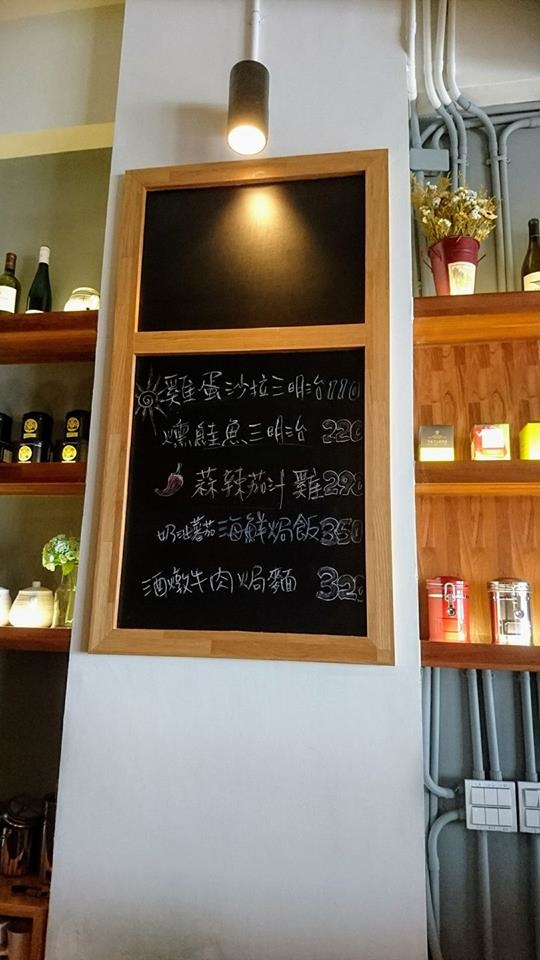 雞蛋沙拉三明治110
燻鮭魚三明治 220
蒜辣茄汁雞290
奶油蕃茄海鮮焗飯350
酒燉牛肉焗麵 320